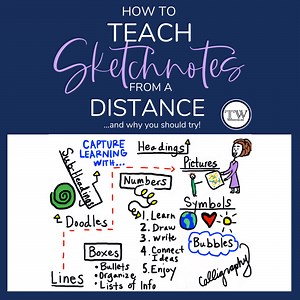 HOW TO
TEACH
Sketchnotes
FROM A
DISTANCE
TW
...and why you should try!
CAPTURE
LEARNING
WITH...
Headings
Pictures
Sub-Headings
Numbers
1. Learn
2. Draw
3. Write
4. Connect
Ideas
5. Enjoy
Symbols
Doodles
Bubbles
Boxes
• Bullets
• Organize
• Lists of Info
Lines
Calligraphy